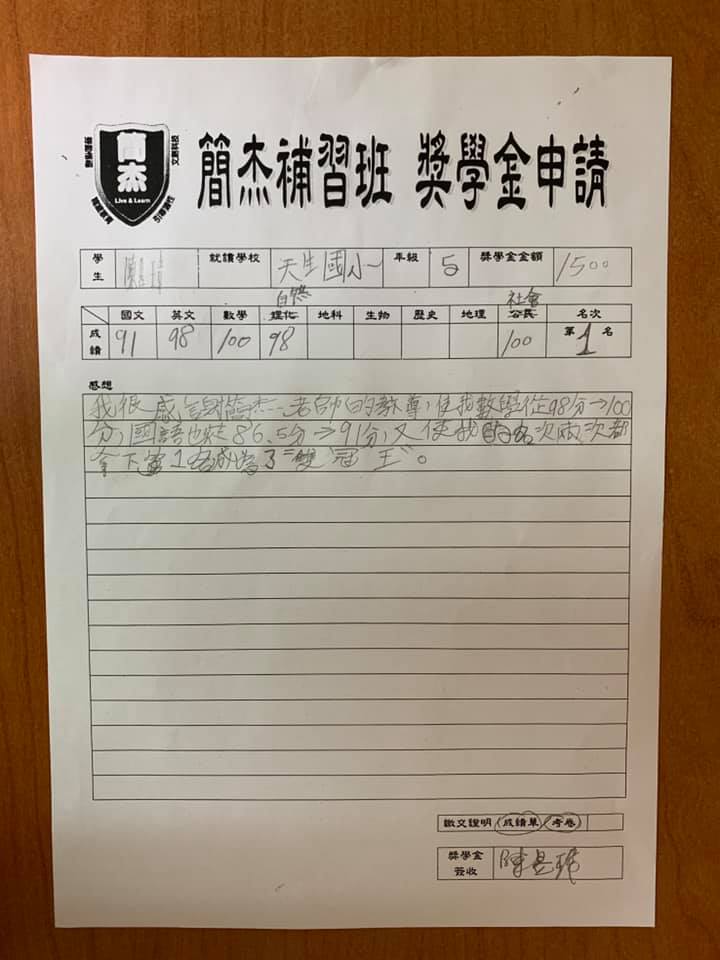 簡杰
Live & Learn
簡杰補習班 獎學金申請
學生 就讀學校 天生國小 年級 5 獎學金金額 1500
自然 社會
國文 英文 數學 理化 地科 生物 歷史 地理 公民 名次
成績 91 98 100 98 100 第1名
感想
我很感謝簡杰老師的教導,使我數學從98分→100
分,國語也從86.5分→91分,又使我的名次兩次都
拿下第1名成為了"雙冠王"。
繳交證明 成績單 考卷
獎學金簽收 陳